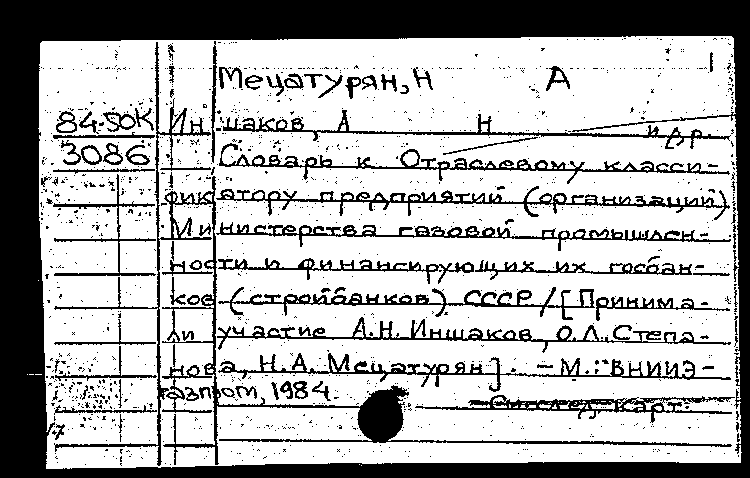 Мецатурян, Н А
84-50К Иншаков, А Н и др.
3086 Словарь к Отраслевому класси-
фикатору предприятий (организаций)
Министерства газовой промышлен-
ности и финансирующих их госбан-
ков (стройбанков) СССР / [Принима-
ли участие А.Н. Иншаков, О.Л. Степа-
нова, Н.А. Мецатурян]. - М.: ВНИИЭ-
газпром, 1984.
карт.